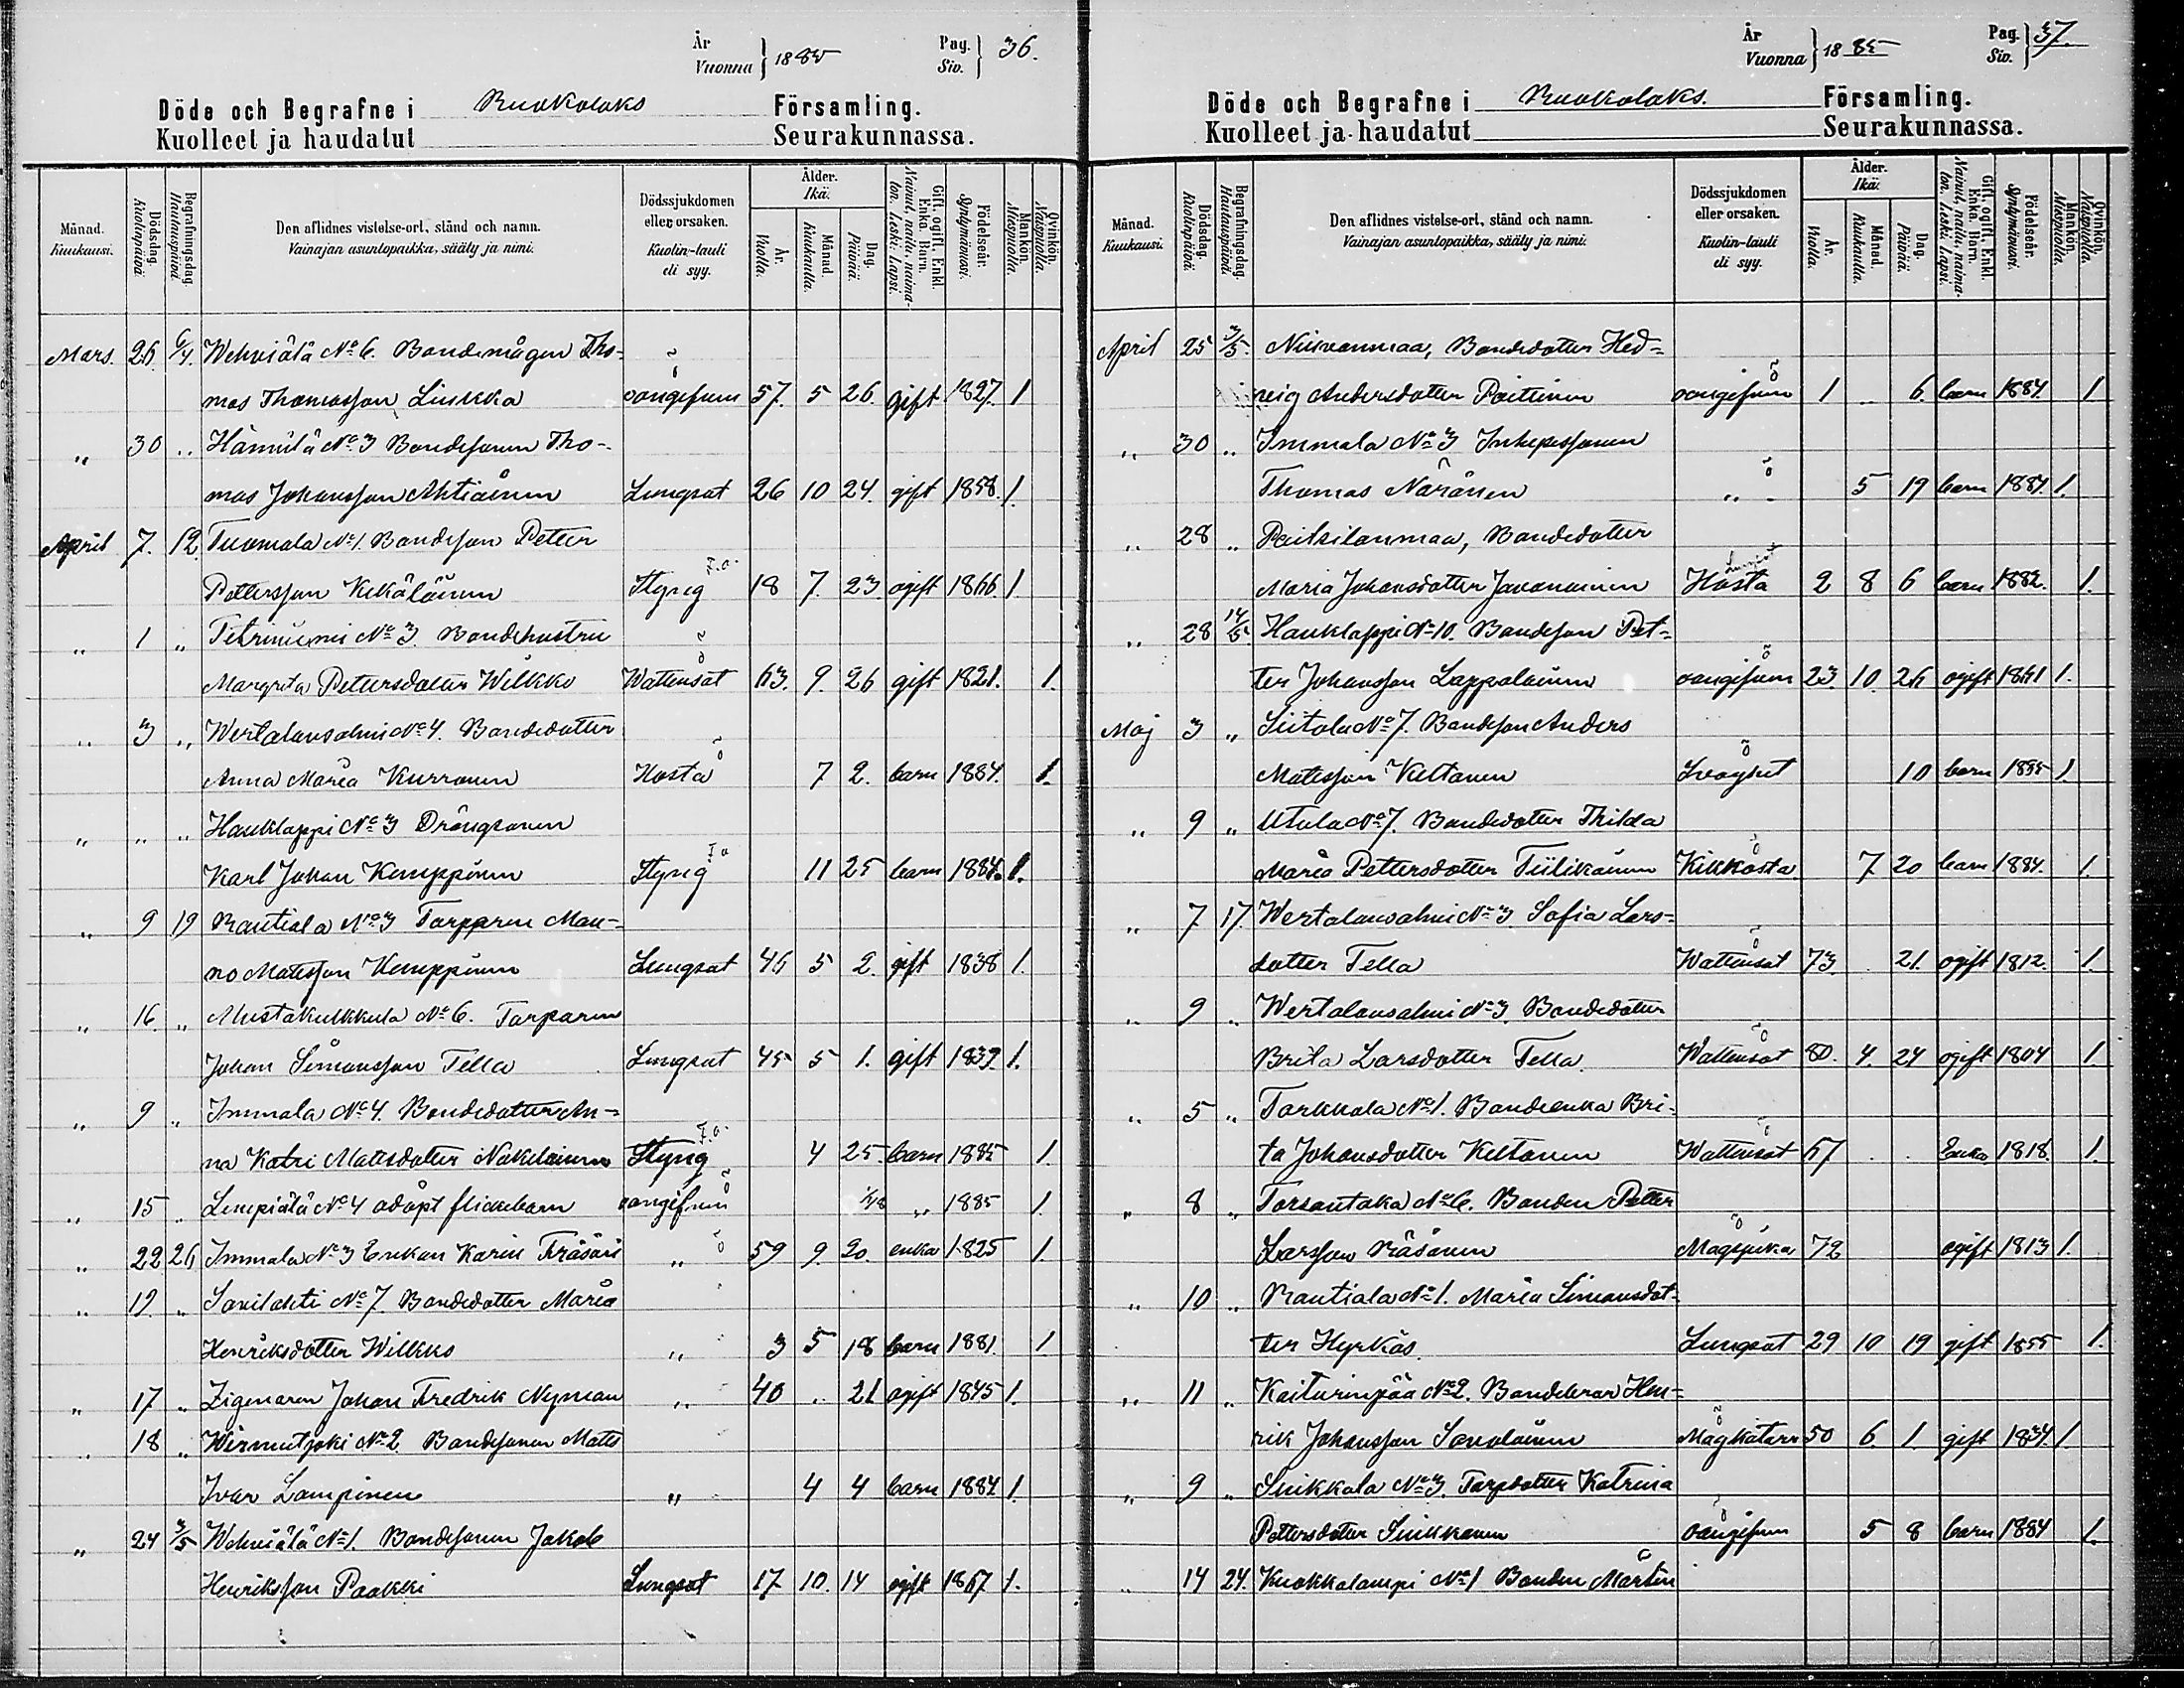 År
Vuonna } 1885
Pag.
Siv. } 36.
Döde och Begrafne i Ruokolaks Församling.
Kuolleet ja haudatut Seurakunnassa.
Månad. Kuukausi.
Dödsdag. Kuolinpäivä.
Begrafningsdag. Hautauspäivä.
Den aflidnes vistelse-ort, stånd och namn.
Vainajan asuntopaikka, sääty ja nimi.
Dödssjukdomen eller orsaken.
Kuolin-tauti eli syy.
Ålder. Ikä.
År. Vuotta.
Månad. Kuukautta.
Dag. Päivää.
Gift, ogift, Enkl. Enka. Barn.
Nainut, naitu, naimaton, leski. Lapsi.
Födelseår. Syntymävuosi.
Mankön. Miespuolia.
Qvinkön. Naispuolia.
Mars. 26 6/4. Wehviälä No 6. Bondemågen Tho-
mas Thomasson Liukka oangifven 57. 5 26. gift 1827. 1
„ 30 „ Hännilä No 3 Bondesonen Tho-
mas Johansson Ahtiainen Lungsot 26 10 24. gift 1858. 1.
April 7. 12 Tuomala No 1. Bondeson Petter
Pettersson Kekäläinen Styng 18 7. 23 ogift 1866. 1
„ 1 „ Petriniemi No 3. Bondehustru
Margreta Pettersdotter Wilkko Wattusot 63. 9. 26 gift 1821. 1.
„ 3 „ Wertalansalmi No 4. Bondedotter
Anna Maria Kurronen Hosta 7 2. barn 1884. 1.
„ „ „ Hauklappi No 3 Drängsonen
Karl Johan Kemppinen Styng 11 25 barn 1884. 1.
„ 9 19 Rautiala No 3 Torparen Man-
no Matsson Kemppinen Lungsot 46 5 2. gift 1838 1.
„ 16. „ Mustakulkkula No 6. Torparen
Johan Simonsson Tella Lungsot 45 5 1. gift 1839. 1.
„ 9 „ Immala No 4. Bondedotter An-
na Katri Matsdotter Nokelainen Styng 4 25. barn 1885 1.
„ 15 „ Lempiälä No 4 odöpt flickebarn oangifven „ 1885 1.
„ 22 26 Immala No 3 Enkan Karin Träsäri „ 59 9. 20. enka 1825 1.
„ 19. „ Savilahti No 7. Bondedotter Maria
Henriksdotter Wilkko „ 3 5 18 barn 1881. 1
„ 17 „ Zigenaren Johan Fredrik Nyman „ 40 „ 21 ogift 1845 1.
„ 18 „ Wirmutjoki No 2 Bondesonen Mats
Ivar Lampinen „ 4 4 barn 1884 1.
„ 24 3/5 Wehviälä No 1. Bondesonen Jakob
Henriksson Paakki Lungsot 17 10. 14 ogift 1867 1.
År
Vuonna } 1885
Pag.
Siv. } 37.
Döde och Begrafne i Ruokolaks. Församling.
Kuolleet ja haudatut Seurakunnassa.
Månad. Kuukausi.
Dödsdag. Kuolinpäivä.
Begrafningsdag. Hautauspäivä.
Den aflidnes vistelse-ort, stånd och namn.
Vainajan asuntopaikka, sääty ja nimi.
Dödssjukdomen eller orsaken.
Kuolin-tauti eli syy.
Ålder. Ikä.
År. Vuotta.
Månad. Kuukautta.
Dag. Päivää.
Gift, ogift, Enkl. Enka. Barn.
Nainut, naitu, naimaton, leski. Lapsi.
Födelseår. Syntymävuosi.
Mankön. Miespuolia.
Qvinkön. Naispuolia.
April 25 3/5. Niskanmaa, Bondedotter Hed-
Andersdotter Poitinen oangifven 1 „ 6. barn 1884. 1
„ 30 „ Immala No 3 Inhysessonen
Thomas Näränen „ 5 19 barn 1884. 1.
„ 28 „ Paitsilanmaa, Bondedotter
Maria Johansdotter Javanainen Hosta 2 8 6 barn 1882. 1.
„ 28 14/5 Hauklappi No 10. Bondeson Pet-
ter Johansson Lappalainen oangifven 23. 10. 26 ogift 1861 1.
Maj 3 „ Siitola No 7. Bondeson Anders
Matsson Keltanen Svaghet 10 barn 1885 1.
„ 9 „ Utula No 7. Bondedotter Thilda
Maria Pettersdotter Tiilikainen Kikkosta 7 20 barn 1884. 1.
„ 7 17. Wertalansalmi No 3. Sofia Lars-
dotter Tella Wattusot 73 21. ogift 1812. 1.
„ 9 „ Wertalansalmi No 3. Bondedotter
Brita Larsdotter Tella. Wattusot 80. 4. 24 ogift 1804 1.
„ 5 „ Torkkola No 1. Bondeenka Bri-
ta Johansdotter Keltanen Wattusot 67 . . Enka 1818. 1.
„ 8 „ Torsantaka No 6. Bonden Petter
Larsson Räsänen Magsjuka 72 ogift 1813 1.
„ 10 „ Rautiala No 1. Maria Simonsdot-
ter Hyrkäs. Lungsot 29 10 19 gift 1855 1.
„ 11 „ Kaiturinpää No 2. Bondebror Hen-
rik Johansson Savolainen Magkatarr 50 6. 1. gift 1834. 1
„ 9 „ Sinkkola No 3. Torpdotter Katrina
Pettersdotter Sinkkonen oangifven 5 8 barn 1884 1.
„ 14 24. Kuokkalampi No 1 Bonden Martin